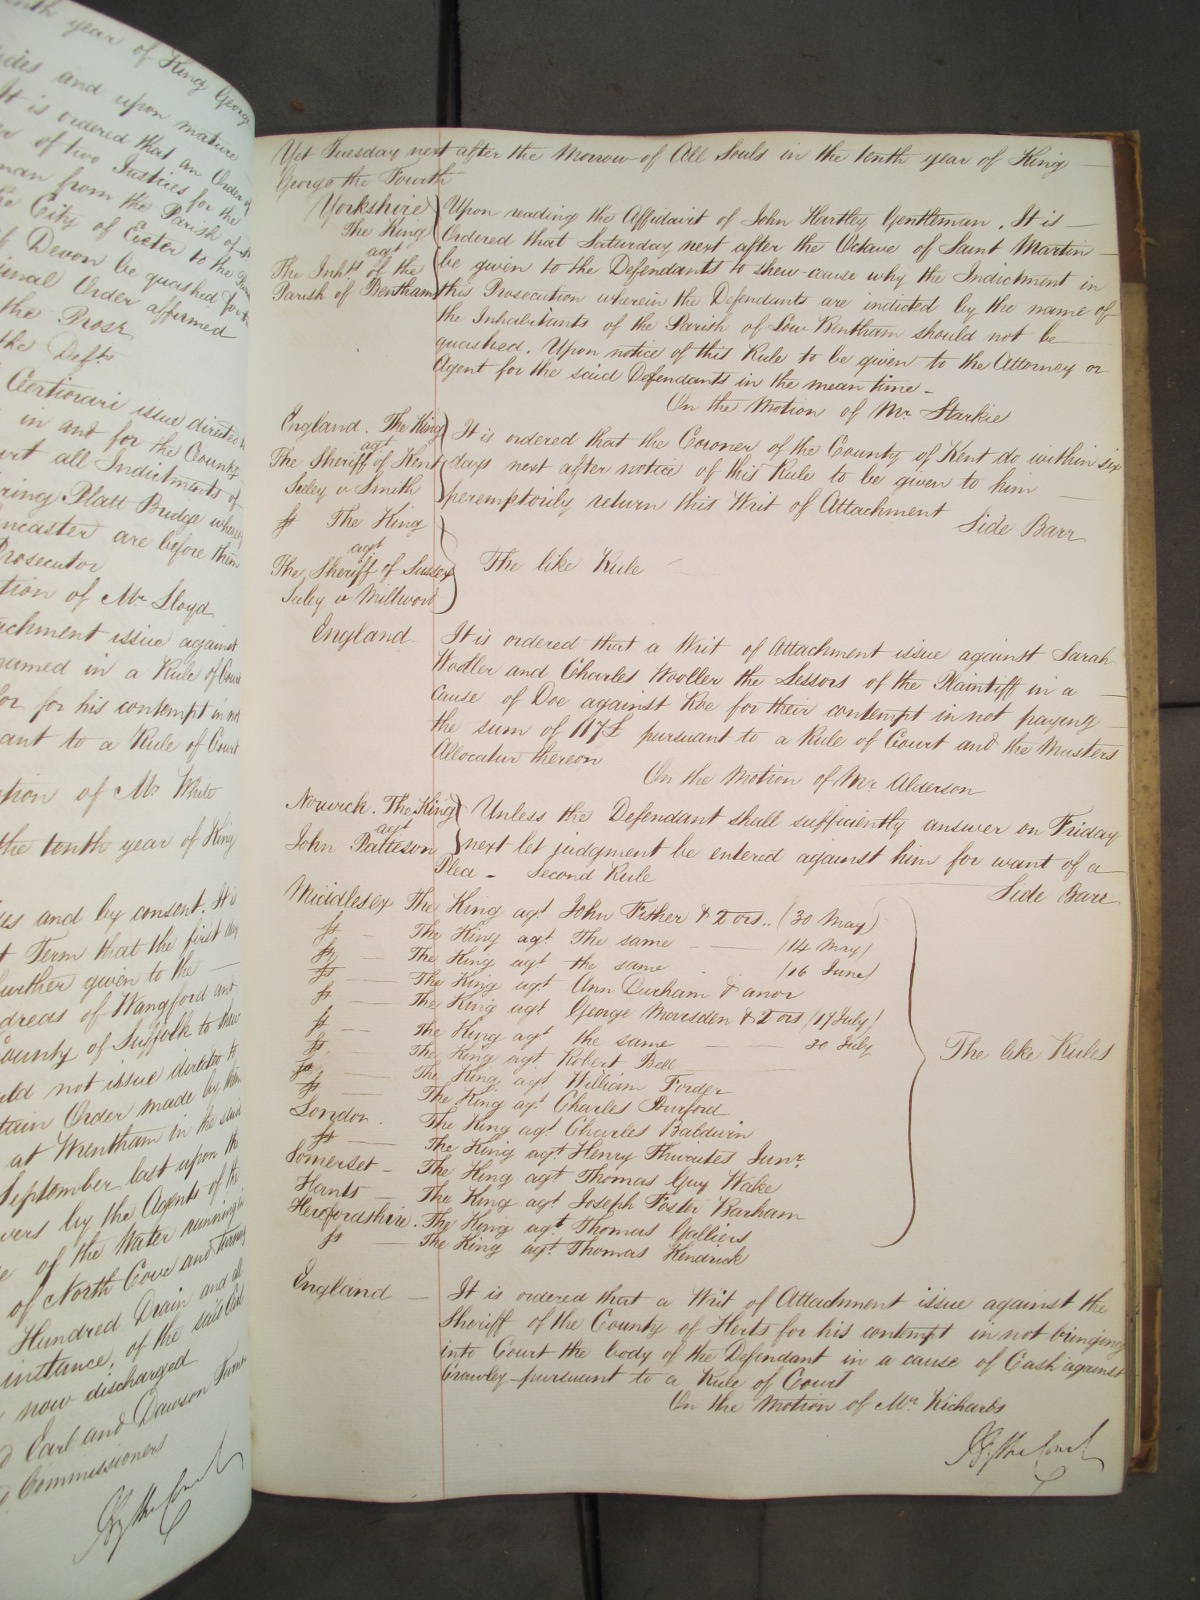 year of King George
and upon mature
It is ordered that an Order of
of two Justices for the
man from the Parish of
City of Exeter to the
of Devon be quashed for
Order affirmed
the Prosr
the Defts
Certiorari issue directed
in and for the County
all Indictments of
Platt Bridge where
are before them
Prosecutor
of Mr Lloyd
issue against
named in a Rule of Court
for his contempt in not
to a Rule of Court
of Mr White
the tenth year of King
and by consent. It is
Term that the first day
further given to the
of Wangford and
County of Suffolk to shew
not issue directed to
Order made by them
at Wrentham in the said
September last upon the
by the Agents of the
of the Water running
of North Cove and
Hundred Drain and
instance, of the said
now discharged
Earl and Dawson
Commissioners
By the Court
Yet Tuesday next after the Morrow of All Souls in the tenth year of King
George the Fourth
Yorkshire
The King
agt
The Inhts of the
Parish of Bentham
Upon reading the Affidavit of John Hartley Gentleman. It is
Ordered that Saturday next after the Octave of Saint Martin
be given to the Defendants to shew cause why the Indictment in
this Prosecution wherein the Defendants are indicted by the name of
the Inhabitants of the Parish of Low Bentham should not be
quashed. Upon notice of this Rule to be given to the Attorney or
Agent for the said Defendants in the mean time
On the Motion of Mr Starkie
England. The King
agt
The Sheriff of Kent
Seley v Smith
It is ordered that the Coroner of the County of Kent do within six
days next after notice of this Rule to be given to him
peremptorily return this Writ of Attachment
Side Barr
The King
agt
The Sheriff of Sussex
Seley v Millwood
The like Rule
England
It is ordered that a Writ of Attachment issue against Sarah
Wooller and Charles Wooller the Lessors of the Plaintiff in a
cause of Doe against Roe for their contempt in not paying
the sum of 117£ pursuant to a Rule of Court and the Masters
Allocatur thereon
On the Motion of Mr Alderson
Norwich. The King
agt
John Patteson
Unless the Defendant shall sufficiently answer on Friday
next let judgment be entered against him for want of a
Plea - Second Rule
Side Barr
Middlesex The King agt John Fisher & 2 ors.. (30 May)
The King agt The same (14 May)
The King agt the same (16 June)
The King agt Ann Durham & anor
The King agt George Marsden & 2 ors (17 July)
The King agt the same 30 July
The King agt Robert Bell
The King agt William Forder
The King agt Charles Burford
London. The King agt Charles Baldwin
The King agt Henry Thwaites Junr.
Somerset The King agt Thomas Guy Wake
Hants The King agt Joseph Foster Barham
Herefordshire. The King agt Thomas Galliers
The King agt Thomas Kendrick
The like Rules
England
It is ordered that a Writ of Attachment issue against the
Sheriff of the County of Herts for his contempt in not bringing
into Court the body of the Defendant in a cause of Cash against
Crawley pursuant to a Rule of Court
On the Motion of Mr. Richards
By the Court